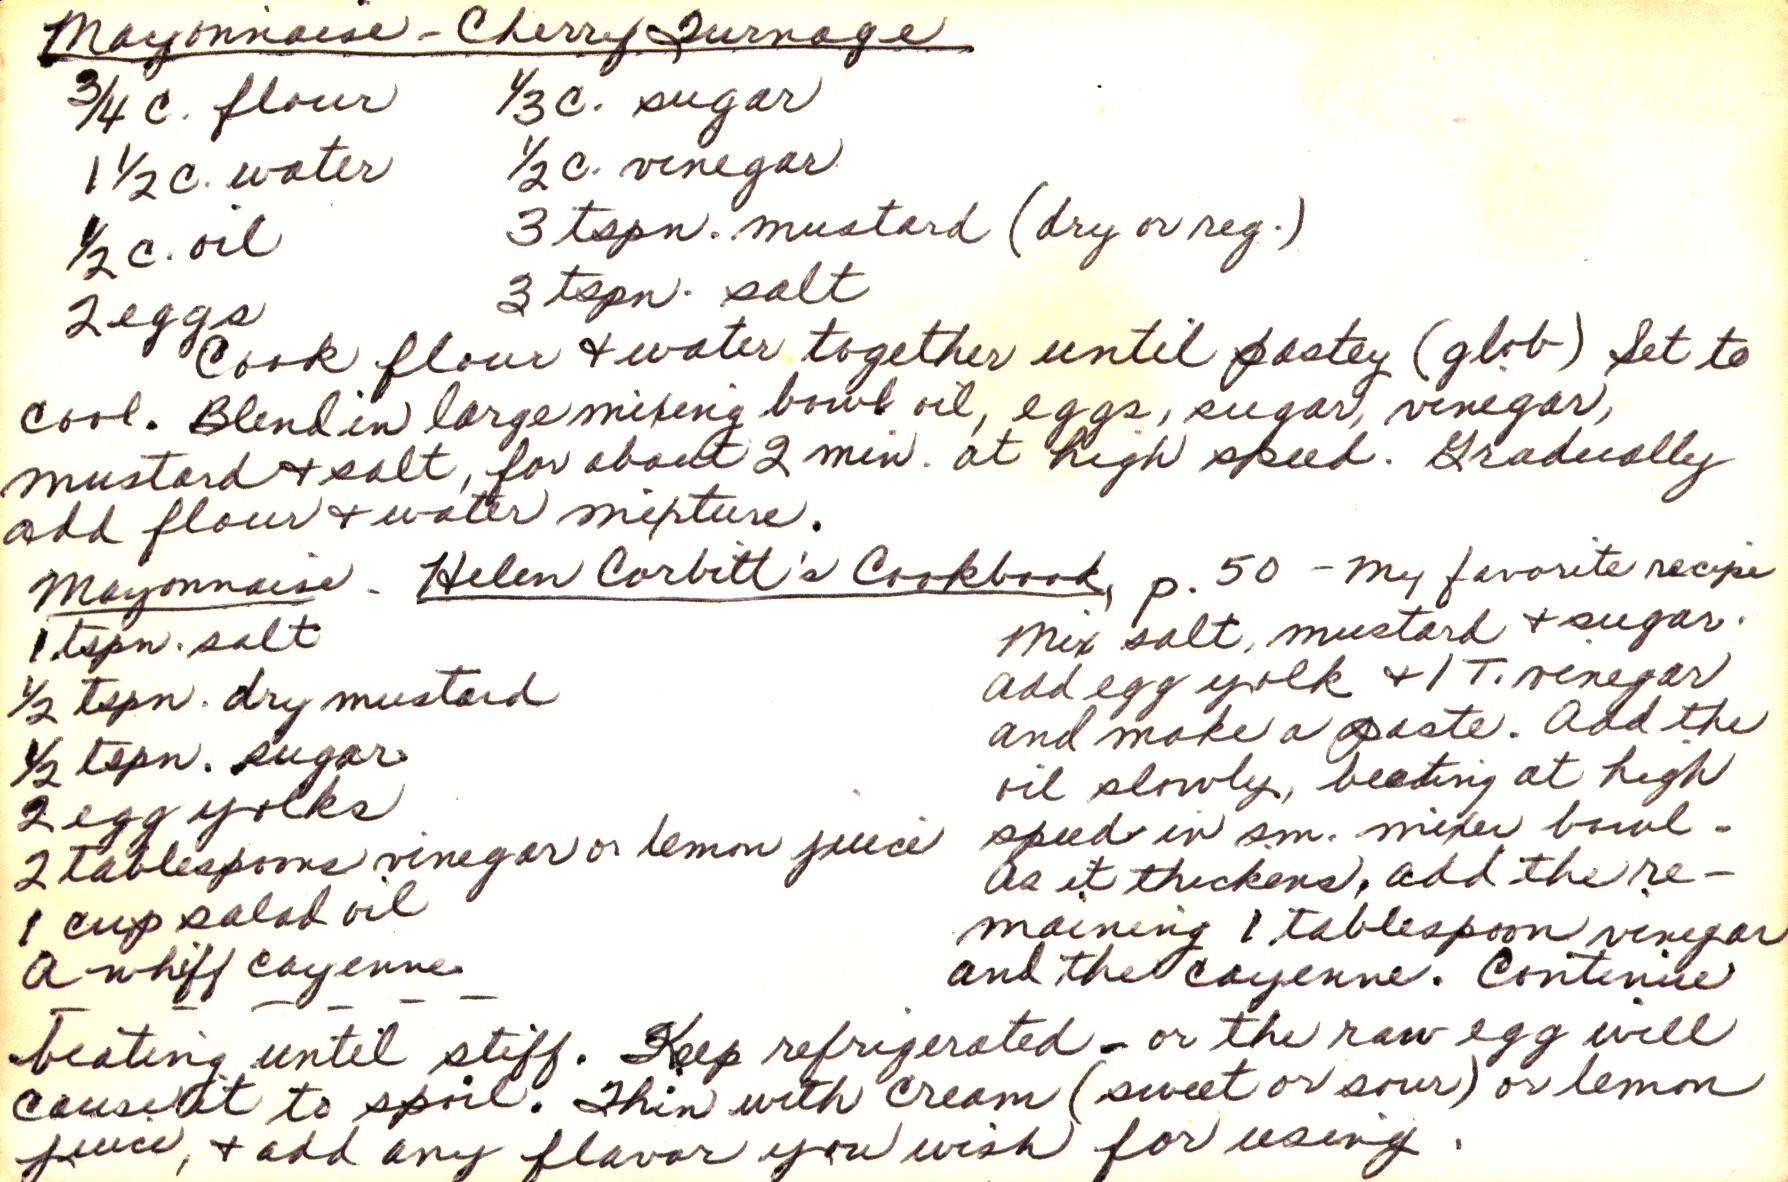 Mayonnaise - Cherry Turnage
3/4 c. flour 1/3 c. sugar
1 1/2 c. water 1/2 c. vinegar
1/2 c. oil 3 tspn. mustard (dry or reg.)
2 eggs 3 tspn. salt
Cook flour & water together until pastey (glob) Set to
cool. Blend in large mixing bowl oil, eggs, sugar, vinegar,
mustard & salt, for about 2 min. at high speed. Gradually
add flour & water mixture.
Mayonnaise - Helen Corbitt's Cookbook, p. 50 - My favorite recipe
1 tspn. salt
1/2 tspn. dry mustard
1/2 tspn. sugar
2 egg yolks
2 tablespoons vinegar or lemon juice
1 cup salad oil
A whiff cayenne
Mix salt, mustard & sugar.
Add egg yolk & 1 T. vinegar
and make a paste. Add the
oil slowly, beating at high
speed in sm. mixer bowl -
As it thickens, add the re-
maining 1 tablespoon vinegar
and the cayenne. Continue
beating until stiff. Keep refrigerated - or the raw egg will
cause it to spoil. Thin with cream (sweet or sour) or lemon
juice, & add any flavor you wish for using.